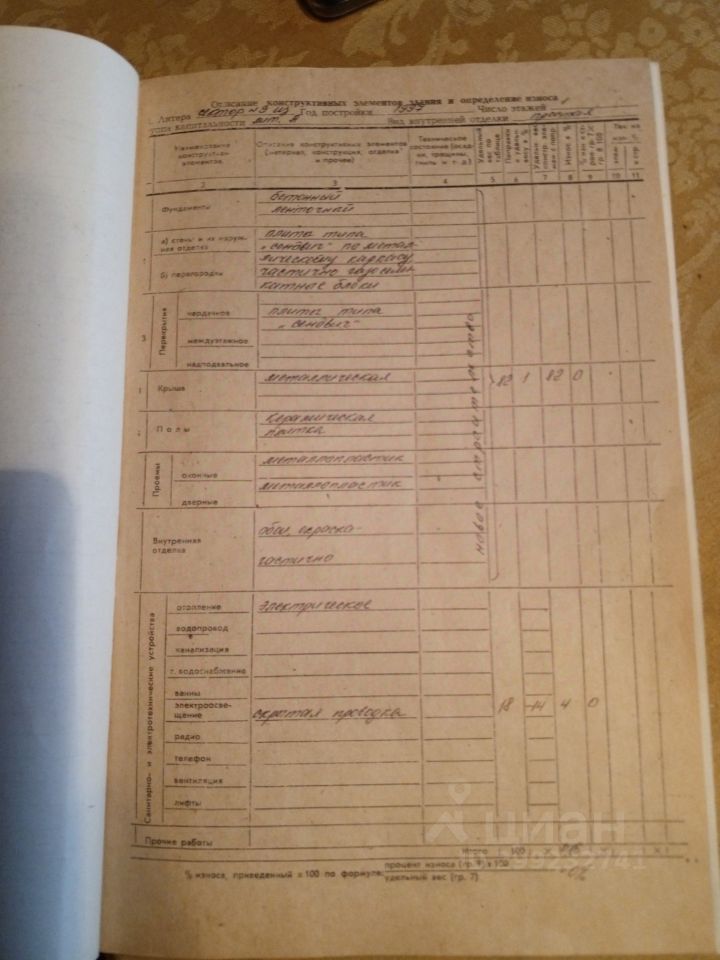 Описание конструктивных элементов здания и определение износа
Литера сектор №3 из Год постройки 1997 Число этажей 1
Группа капитальности лит. А Вид внутренней отделки простая
Наименование конструктив. элементов
Описание конструктивных элементов (материал, конструкция, отделка и прочее)
Техническое состояние (осадки, трещины, гниль и т. д.)
Удельный вес по таблице
Износ в %
2 3 4 5 6 7 8 9 10 11
Фундаменты бетонный
ленточный
а) стены и их наружная отделка плита типа
„сендвич" по метал-
лическому каркасу
б) перегородки частично газосили-
катные блоки
3 Перекрытия
чердачное плита типа
„сендвич"
междуэтажное
надподвальное
Крыша металлическая 82 1 82 0
Полы керамическая
плитка
Проемы
оконные металлопластик
металлопластик
дверные
новое строительство
Внутренняя отделка обои, окраска-
частично
Санитарно- и электротехнические устройства
отопление электрическое
водопровод
канализация
г. водоснабжение
ванны
электроосве-
щение скрытая проводка 18 -14 4 0
радио
телефон
вентиляция
лифты
Прочие работы
Итого 100 х х
% износа, приведенный к 100 по формуле: процент износа (гр. 9) х 100
удельный вес (гр. 7)
циан